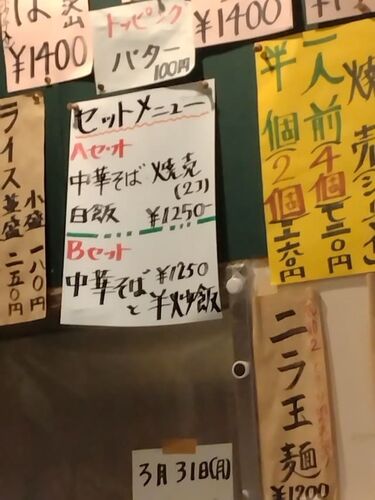 ¥1400
トッピング
バター
100円
¥1400
セットメニュー
Aセット
中華そば 焼売
(2コ)
白飯 ¥1250-
Bセット
中華そば ¥1250
と 半炒飯
ライス 小盛 一八〇円
並盛 二五〇円
一人前(4個)七二〇円
半個(2個)三六〇円
ニラ玉麺
¥1200
3月31日(月)